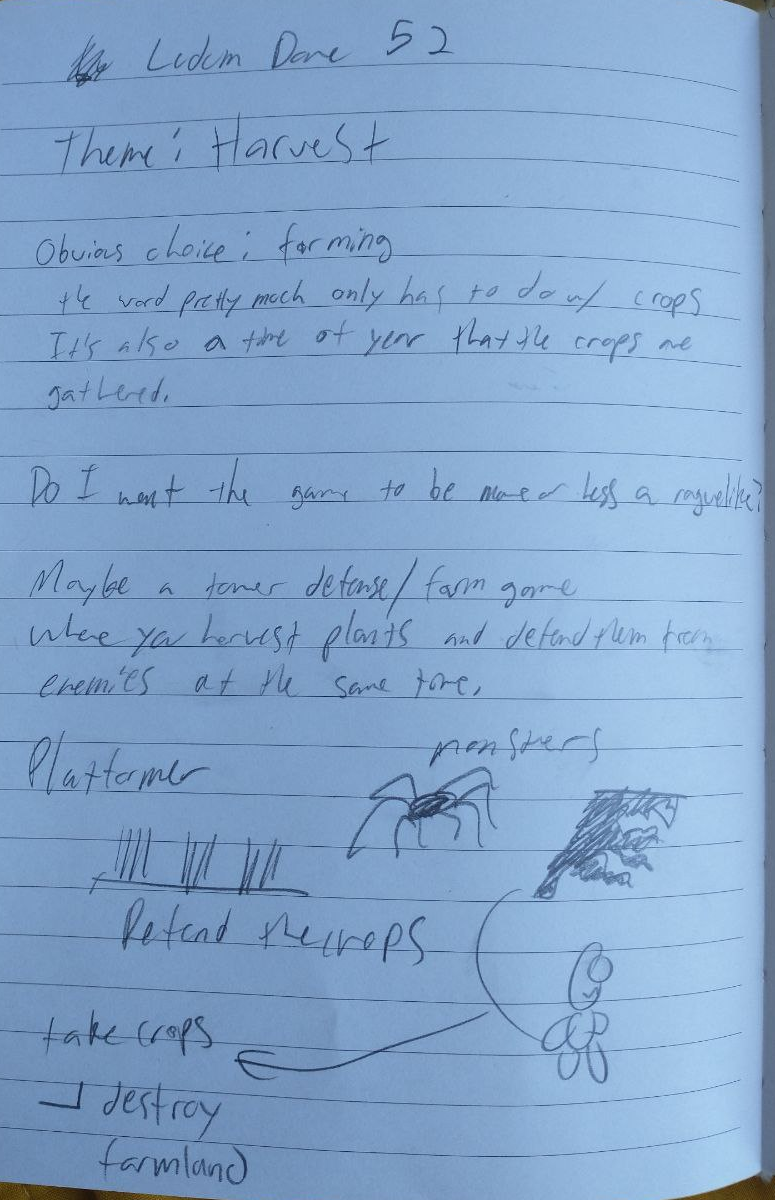 Ludum Dare 52
Theme: Harvest
Obvious choice: farming
the word pretty much only has to do w/ crops
It's also a time of year that the crops are
gathered.
Do I want the game to be more or less a roguelike?
Maybe a tower defense/farm game
where you harvest plants and defend them from
enemies at the same time.
Platformer
monsters
Defend the crops
take crops
destroy
farmland